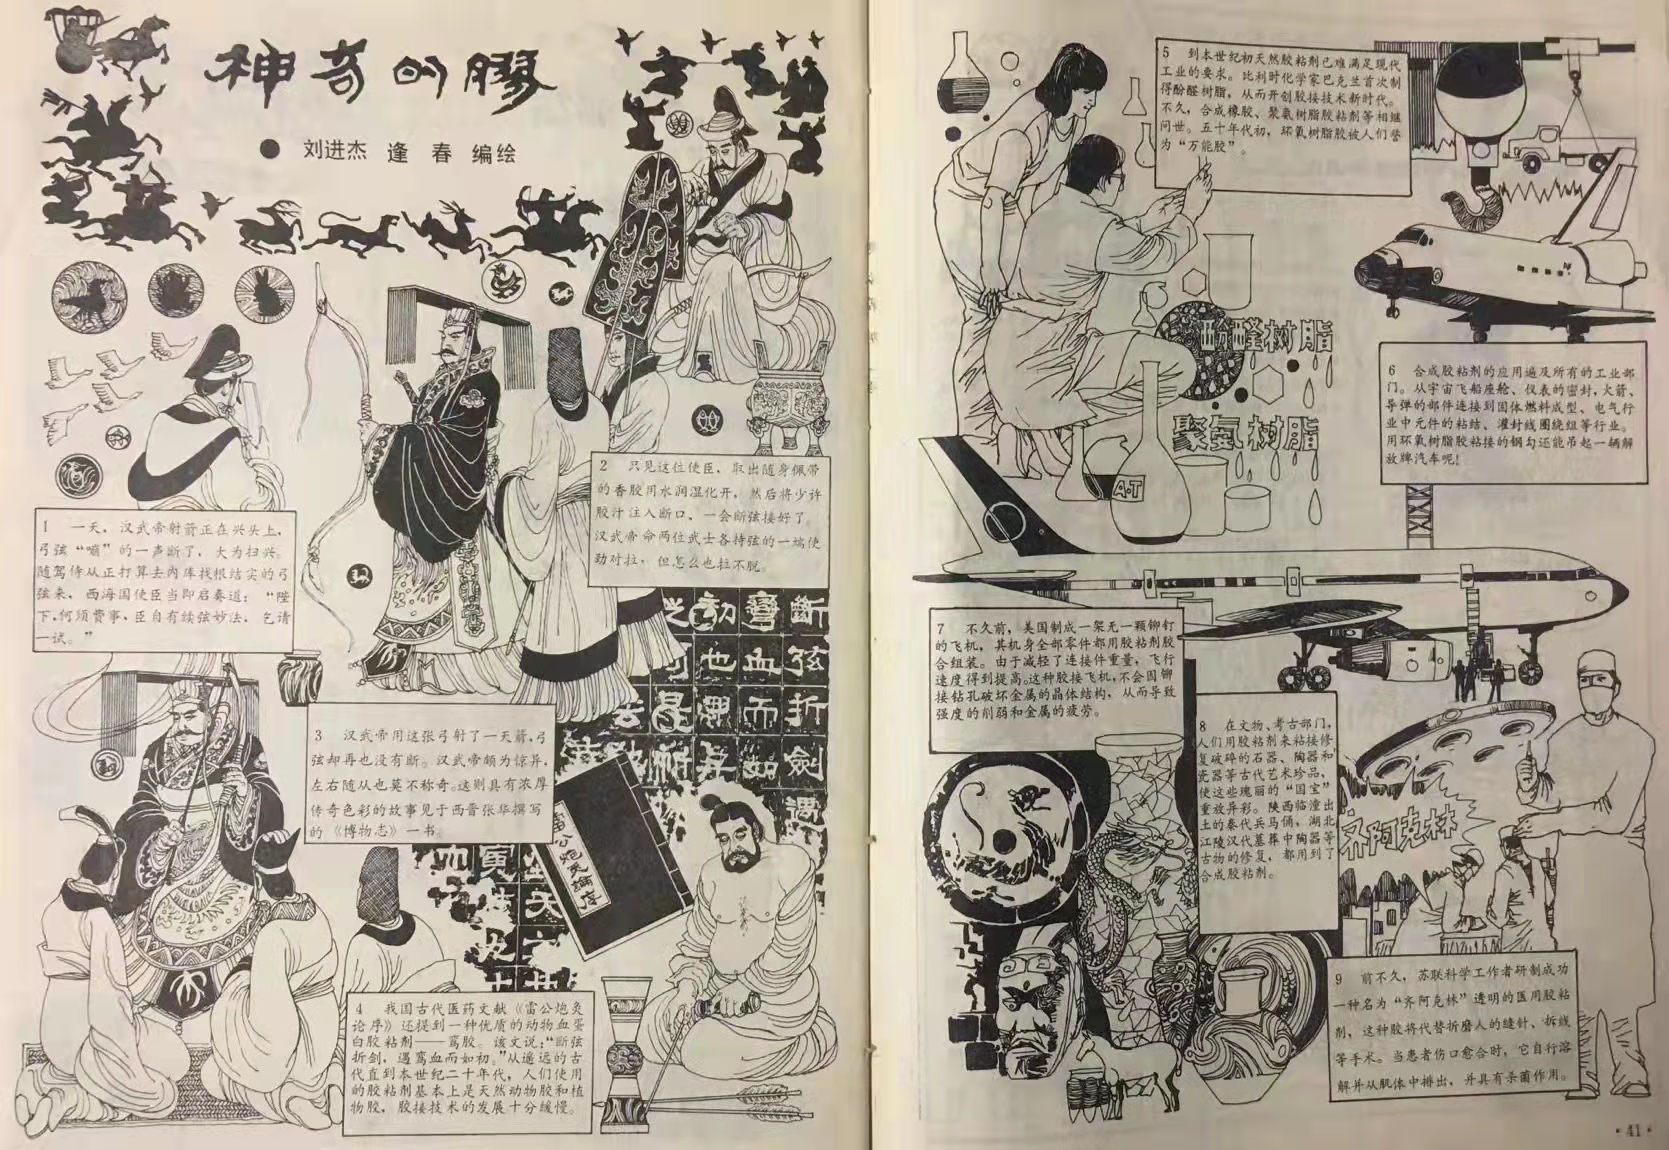 神奇的胶
● 刘进杰 逢春 编绘
1 一天，汉武帝射箭正在兴头上，
弓弦“嘣”的一声断了，大为扫兴。
随驾侍从正打算去内库找根结实的弓
弦来，西海国使臣当即启奏道：“陛
下，何须费事，臣自有续弦妙法，乞请
一试。”
2 只见这位使臣，取出随身佩带
的香胶用水润湿化开，然后将少许
胶汁注入断口、一会断弦接好了。
汉武帝命两位武士各持弦的一端使
劲对拉，但怎么也拉不脱。
3 汉武帝用这张弓射了一天箭，弓
弦却再也没有断。汉武帝颇为惊异，
左右随从也莫不称奇。这则具有浓厚
传奇色彩的故事见于西晋张华撰写
的《博物志》一书。
斷弦折劍遇
鸞血而如
初也
雷公炮炙論序
4 我国古代医药文献《雷公炮炙
论序》还提到一种优质的动物血蛋
白胶粘剂——鸾胶。该文说：“断弦
折剑，遇鸾血而如初。”从遥远的古
代直到本世纪二十年代，人们使用
的胶粘剂基本上是天然动物胶和植
物胶，胶接技术的发展十分缓慢。
5 到本世纪初天然胶粘剂已难满足现代
工业的要求。比利时化学家巴克兰首次制
得酚醛树脂，从而开创胶接技术新时代。
不久，合成橡胶、聚氨树脂胶粘剂等相继
问世。五十年代初，环氧树脂胶被人们誉
为“万能胶”。
酚醛树脂
聚氨树脂
A·T
6 合成胶粘剂的应用遍及所有的工业部
门。从宇宙飞船座舱、仪表的密封，火箭、
导弹的部件连接到固体燃料成型、电气行
业中元件的粘结、灌封线圈绕组等行业。
用环氧树脂胶粘接的钢勾还能吊起一辆解
放牌汽车呢！
7 不久前，美国制成一架无一颗铆钉
的飞机，其机身全部零件都用胶粘剂胶
合组装。由于减轻了连接件重量，飞行
速度得到提高。这种胶接飞机，不会因铆
接钻孔破坏金属的晶体结构，从而导致
强度的削弱和金属的疲劳。
8 在文物、考古部门，
人们用胶粘剂来粘接修
复破碎的石器、陶器和
瓷器等古代艺术珍品，
使这些瑰丽的“国宝”
重放异彩。陕西临潼出
土的秦代兵马俑，湖北
江陵汉代墓葬中陶器等
古物的修复，都用到了
合成胶粘剂。
齐阿克林
9 前不久，苏联科学工作者研制成功
一种名为“齐阿克林”透明的医用胶粘
剂，这种胶将代替折磨人的缝针、拆线
等手术。当患者伤口愈合时，它自行溶
解并从肌体中排出，并具有杀菌作用。
·41·